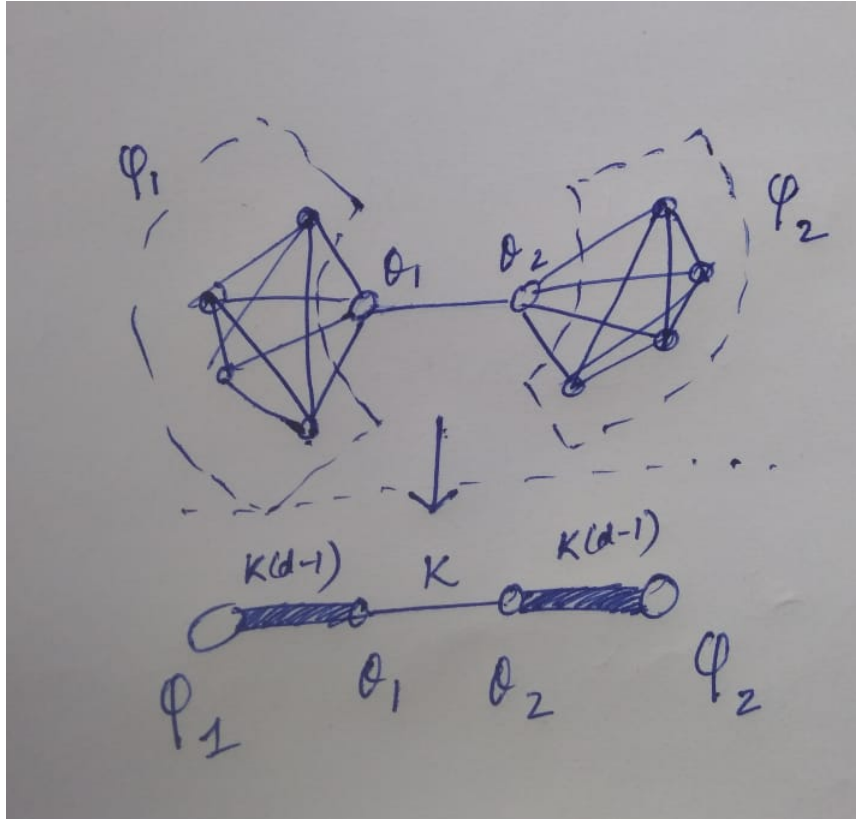 φ₁
θ₁ θ₂
φ₂
K(d-1) K K(d-1)
φ₁ θ₁ θ₂ φ₂